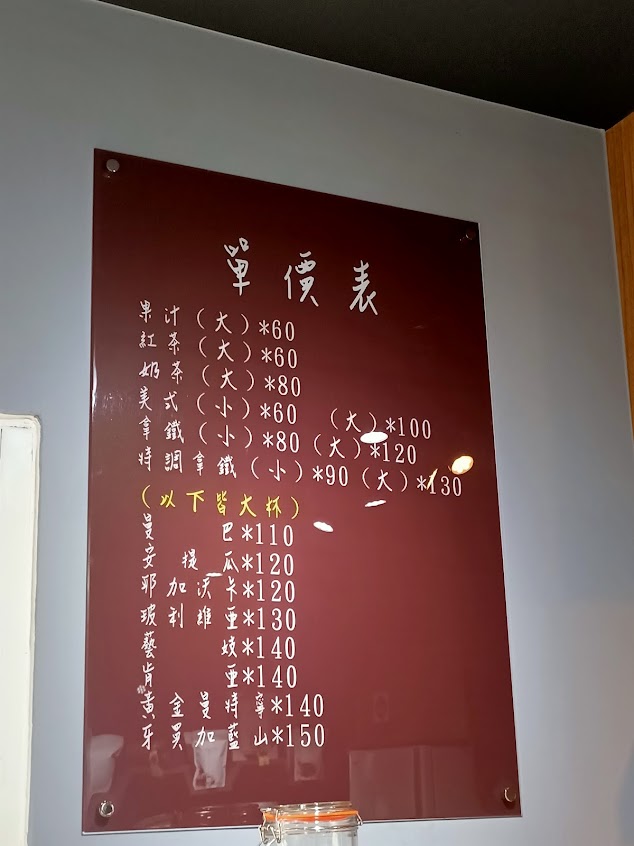 單價表
果汁（大）*60
紅茶（大）*60
奶茶（大）*80
美式（小）*60 （大）*100
拿鐵（小）*80（大）*120
特調拿鐵（小）*90（大）*130
（以下皆大杯）
曼巴*110
安提瓜*120
耶加沃卡*120
玻利維亞*130
藝妓*140
肯亞*140
黃金曼特寧*140
牙買加藍山*150